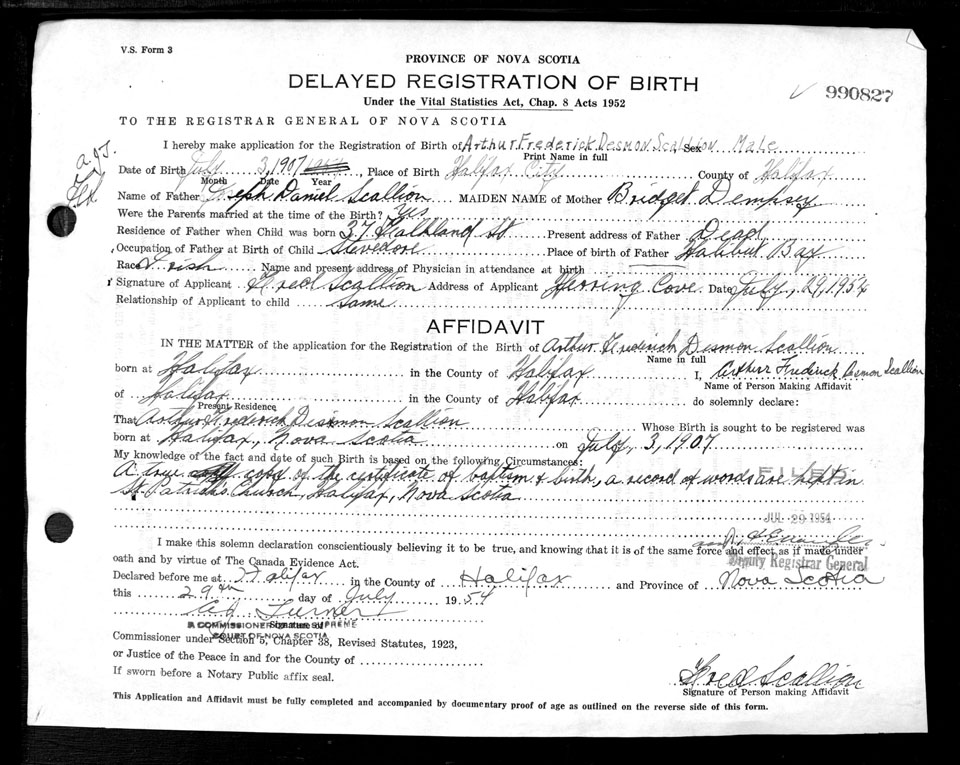 V.S. Form 3
PROVINCE OF NOVA SCOTIA
DELAYED REGISTRATION OF BIRTH
Under the Vital Statistics Act, Chap. 8 Acts 1952
990827
TO THE REGISTRAR GENERAL OF NOVA SCOTIA
I hereby make application for the Registration of Birth of Arthur Frederick Desmon Scallion Sex Male
Print Name in full
Date of Birth July 3, 1907, Place of Birth Halifax City County of Halifax
Month Date Year
Name of Father Joseph Daniel Scallion MAIDEN NAME of Mother Bridget Dempsey
Were the Parents married at the time of the Birth? Yes
Residence of Father when Child was born 37 Falkland St Present address of Father Dead
Occupation of Father at Birth of Child Stevedore Place of birth of Father Halibut Bay
Race Irish Name and present address of Physician in attendance at birth
Signature of Applicant Fred Scallion Address of Applicant Herring Cove Date July, 29, 1954
Relationship of Applicant to child same
AFFIDAVIT
IN THE MATTER of the application for the Registration of the Birth of Arthur Frederick Desmon Scallion
Name in full
born at Halifax in the County of Halifax I, Arthur Frederick Desmon Scallion
Name of Person Making Affidavit
of Halifax in the County of Halifax do solemnly declare:
Present Residence
That Arthur Frederick Desmon Scallion Whose Birth is sought to be registered was
born at Halifax, Nova Scotia on July, 3, 1907
My knowledge of the fact and date of such Birth is based on the following Circumstances:
A true copy of the certificate of baptism & birth, a record of words are kept in
St. Patricks Church, Halifax, Nova Scotia
FILED
JUL 29 1954
I make this solemn declaration conscientiously believing it to be true, and knowing that it is of the same force and effect as if made under
Deputy Registrar General
oath and by virtue of The Canada Evidence Act.
Declared before me at Halifax in the County of Halifax and Province of Nova Scotia
this 29th day of July 1954
Turner
A COMMISSIONER OF THE SUPREME
Signature of
COURT OF NOVA SCOTIA
Commissioner under Section 5, Chapter 38, Revised Statutes, 1923,
or Justice of the Peace in and for the County of
If sworn before a Notary Public affix seal.
Fred Scallion
Signature of Person making Affidavit
This Application and Affidavit must be fully completed and accompanied by documentary proof of age as outlined on the reverse side of this form.